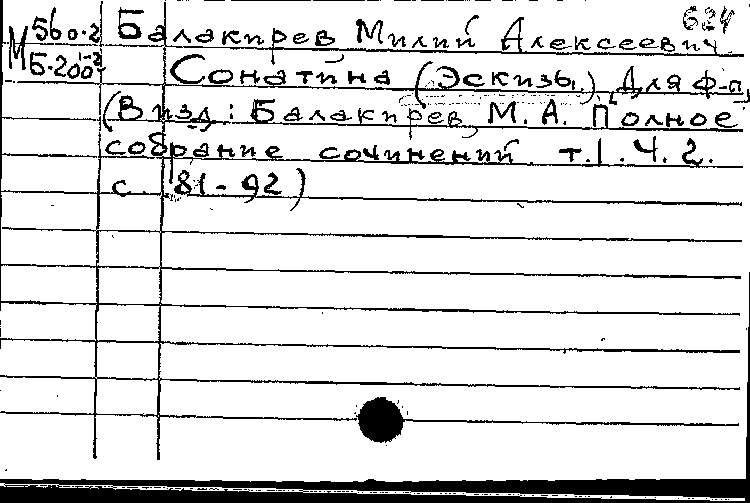 624
М 560-2 Балакирев Милий Алексеевич.
Б-200 Сонатина (Эскизы) Для ф-п.
(В изд.: Балакирев, М. А. Полное
собрание сочинений. т.1. Ч. 2.
с. 81-92)